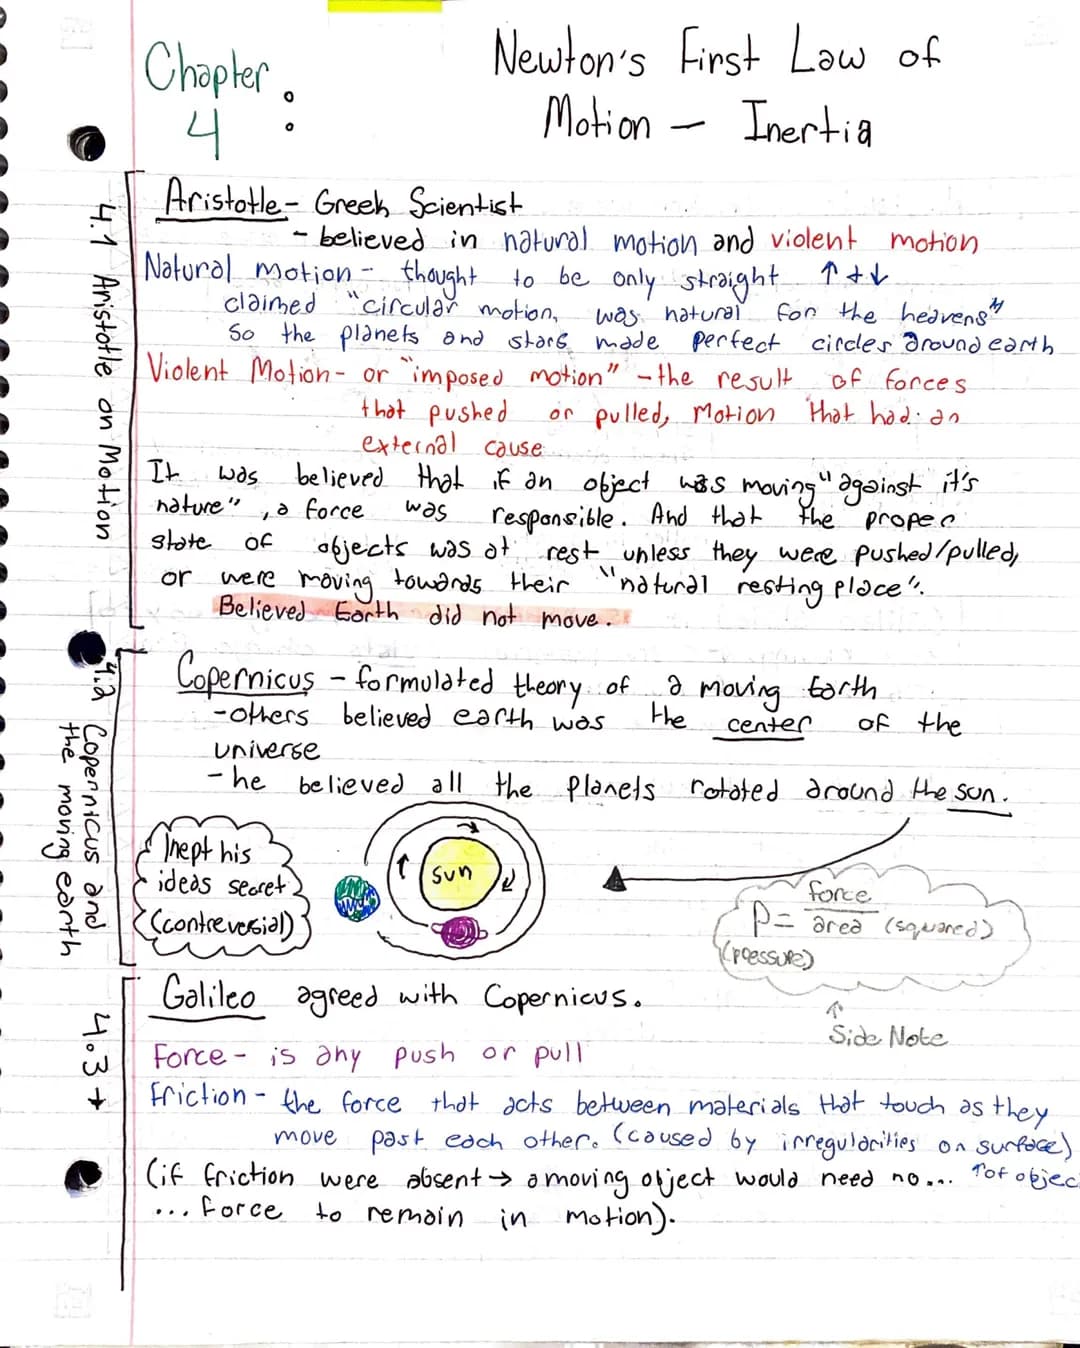 Chapter 4 :
Newton's First Law of
Motion — Inertia
4.1 Aristotle on Motion
Aristotle - Greek Scientist
- believed in natural motion and violent motion
Natural motion - thought to be only straight ↑ + ↓
claimed "circular motion, was natural for the heavens"
So the planets and stars made perfect circles around earth
Violent Motion - or "imposed motion" - the result of forces
that pushed or pulled, Motion that had an
external cause
It was believed that if an object was moving "against it's
nature", a force was responsible. And that the proper
state of objects was at rest unless they were pushed/pulled,
or were moving towards their "natural resting place".
Believed Earth did not move.
4.2 Copernicus and
the moving earth
Copernicus - formulated theory of a moving Earth
- others believed earth was the center of the
universe
- he believed all the planets rotated around the sun.
kept his
ideas secret
(contreversial)
sun
P = force
area (squared)
(pressure)
↑
Side Note
4.3 →
Galileo agreed with Copernicus.
Force - is any push or pull
Friction - the force that acts between materials that touch as they
move past each other. (caused by irregularities on surface)
↑ of objec
(if friction were absent → a moving object would need no...
... force to remain in motion).